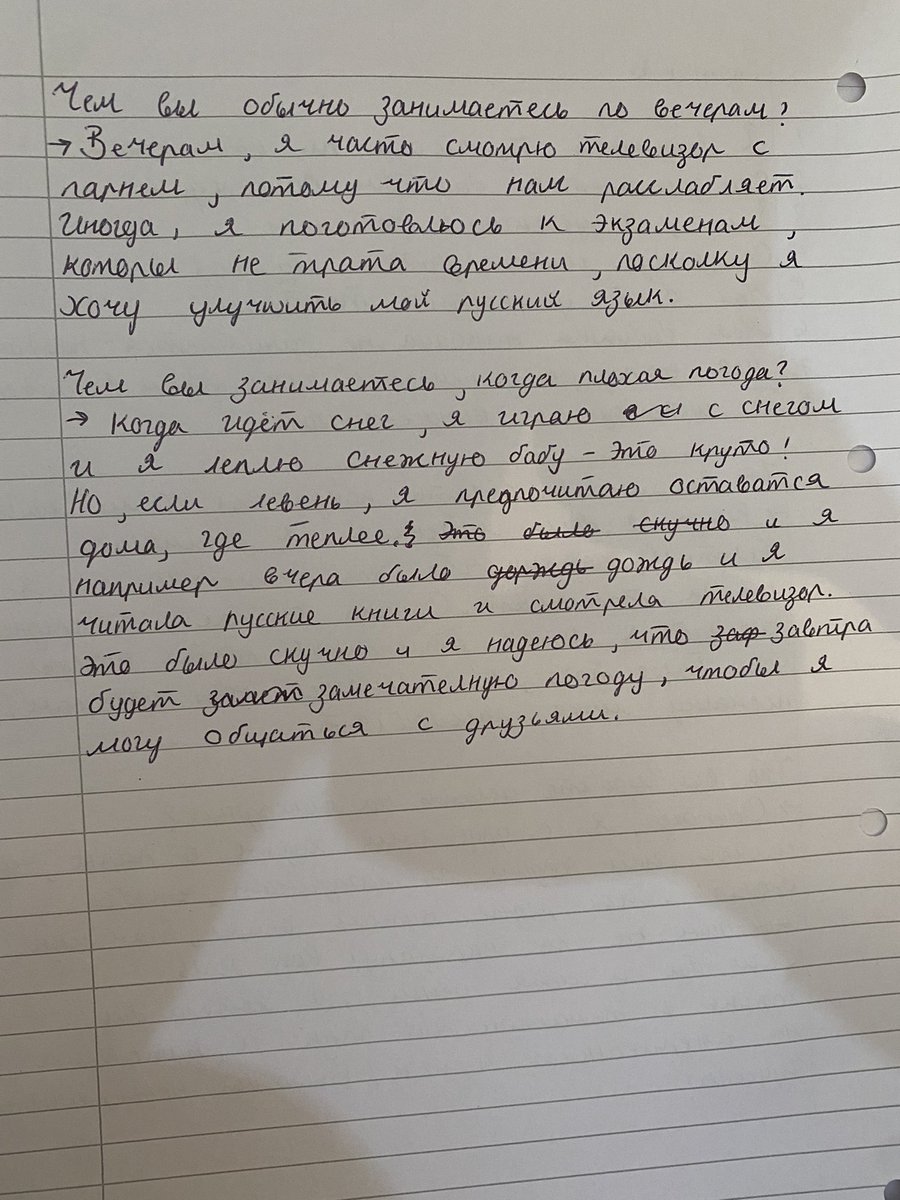 Чем вы обычно занимаетесь по вечерам?
→ Вечерам, я часто смотрю телевизор с
парнем, потому что нам расслабляет.
Иногда, я поготовлюсь к экзаменам,
которы не трата времени, посколку я
хочу улучшить мой русский язык.
Чем вы занимаетесь, когда плохая погода?
→ Когда идёт снег, я играю с снегом
и я леплю снежную бабу - это круто!
Но, если левень, я предпочитаю оставатся
дома, где теплее. это было скучно и я
например вчера было дождь и я
читала русские книги и смотрела телевизор.
это было скучно и я надеюсь, что завтра
будет замечателную погоду, чтобы я
могу общаться с друзьями.